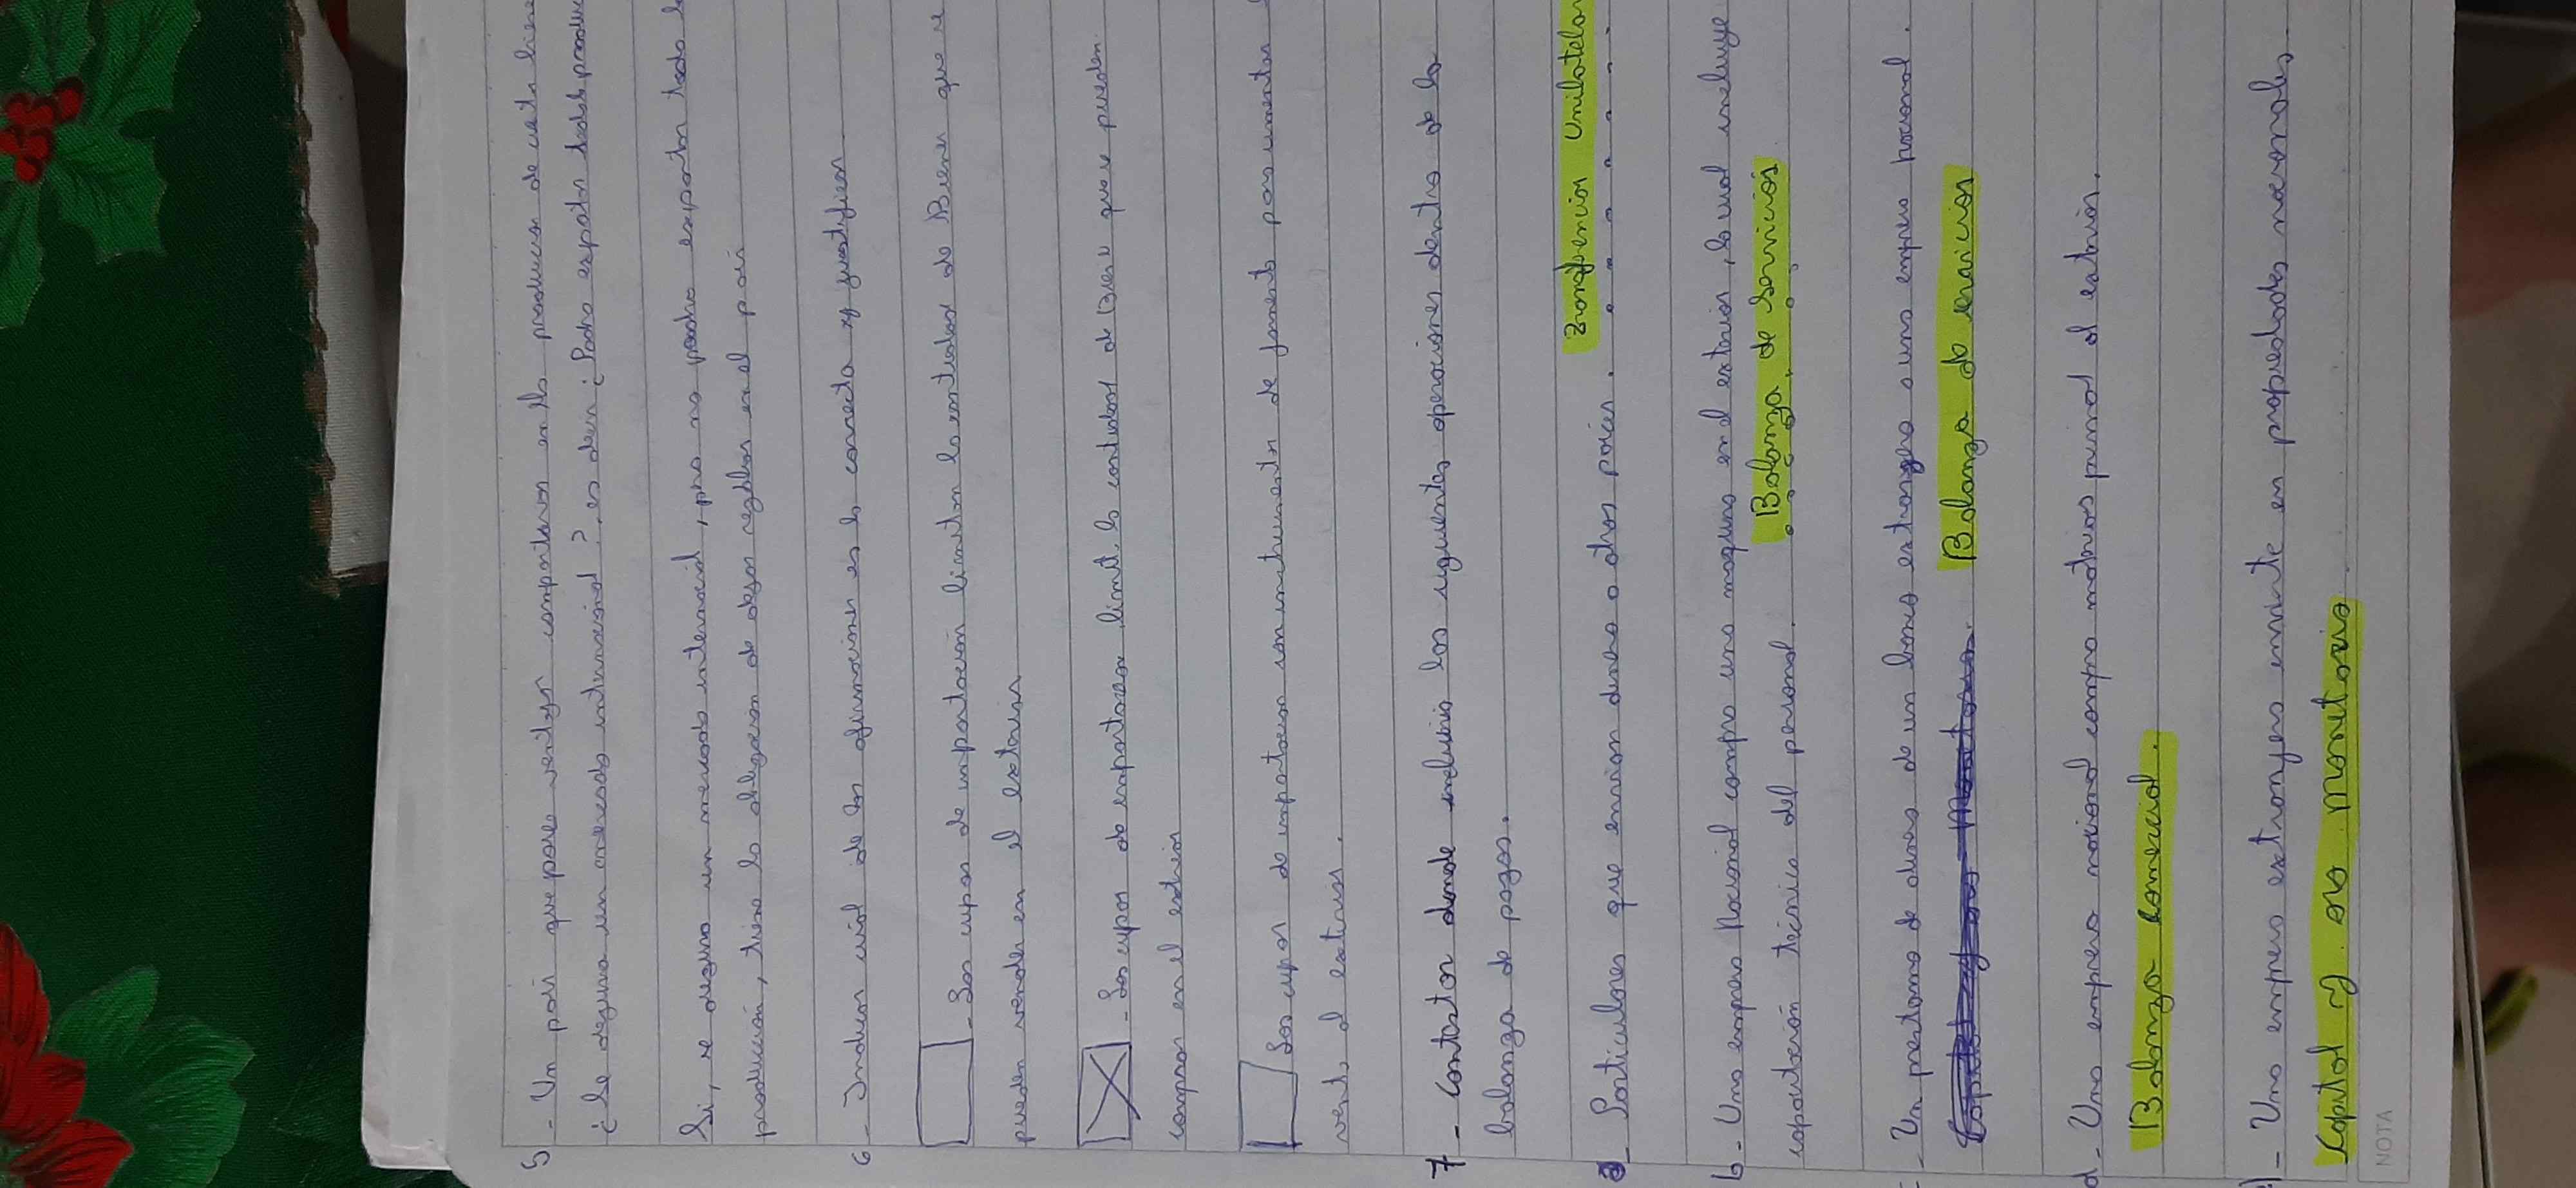 5 - Un país que posee ventajas comparativas en la producción de cierto biene
¿Se asegura un mercado internacional?, es decir ¿Podrá exportar toda la produc
Si, se asegura un mercado internacional, pero no podrá exportar toda la
producción, tiene la obligación de dejar regalías en el país
6 - Indicar cuál de las afirmaciones es la correcta y justificar
- Los cupos de importación limitan la cantidad de Bienes que se
pueden vender en el exterior
X - Los cupos de importación limit. la cantidad de Biene que se pueden
comprar en el exterior
Los cupos de importación son instrumento de fomento para aumentar l
venta al exterior.
7 - Contestar donde incluiría las siguientes operaciones dentro de la
balanza de pagos.
a - Particulares que envían dinero a otros países. Transferencias Unilatelar
b - Una empresa Nacional compra una maquina en el exterior, la cual incluye
capacitación técnica del personal. Balanza de Servicios
- Un prestamo de dinero de un banco extranjero a una empresa nacional.
Balanza de servicios
d - Una empresa nacional compra materias primas al exterior.
Balanza comercial.
- Una empresa extranjera invierte en propiedades nacionales.
Capital y oro monetario
NOTA